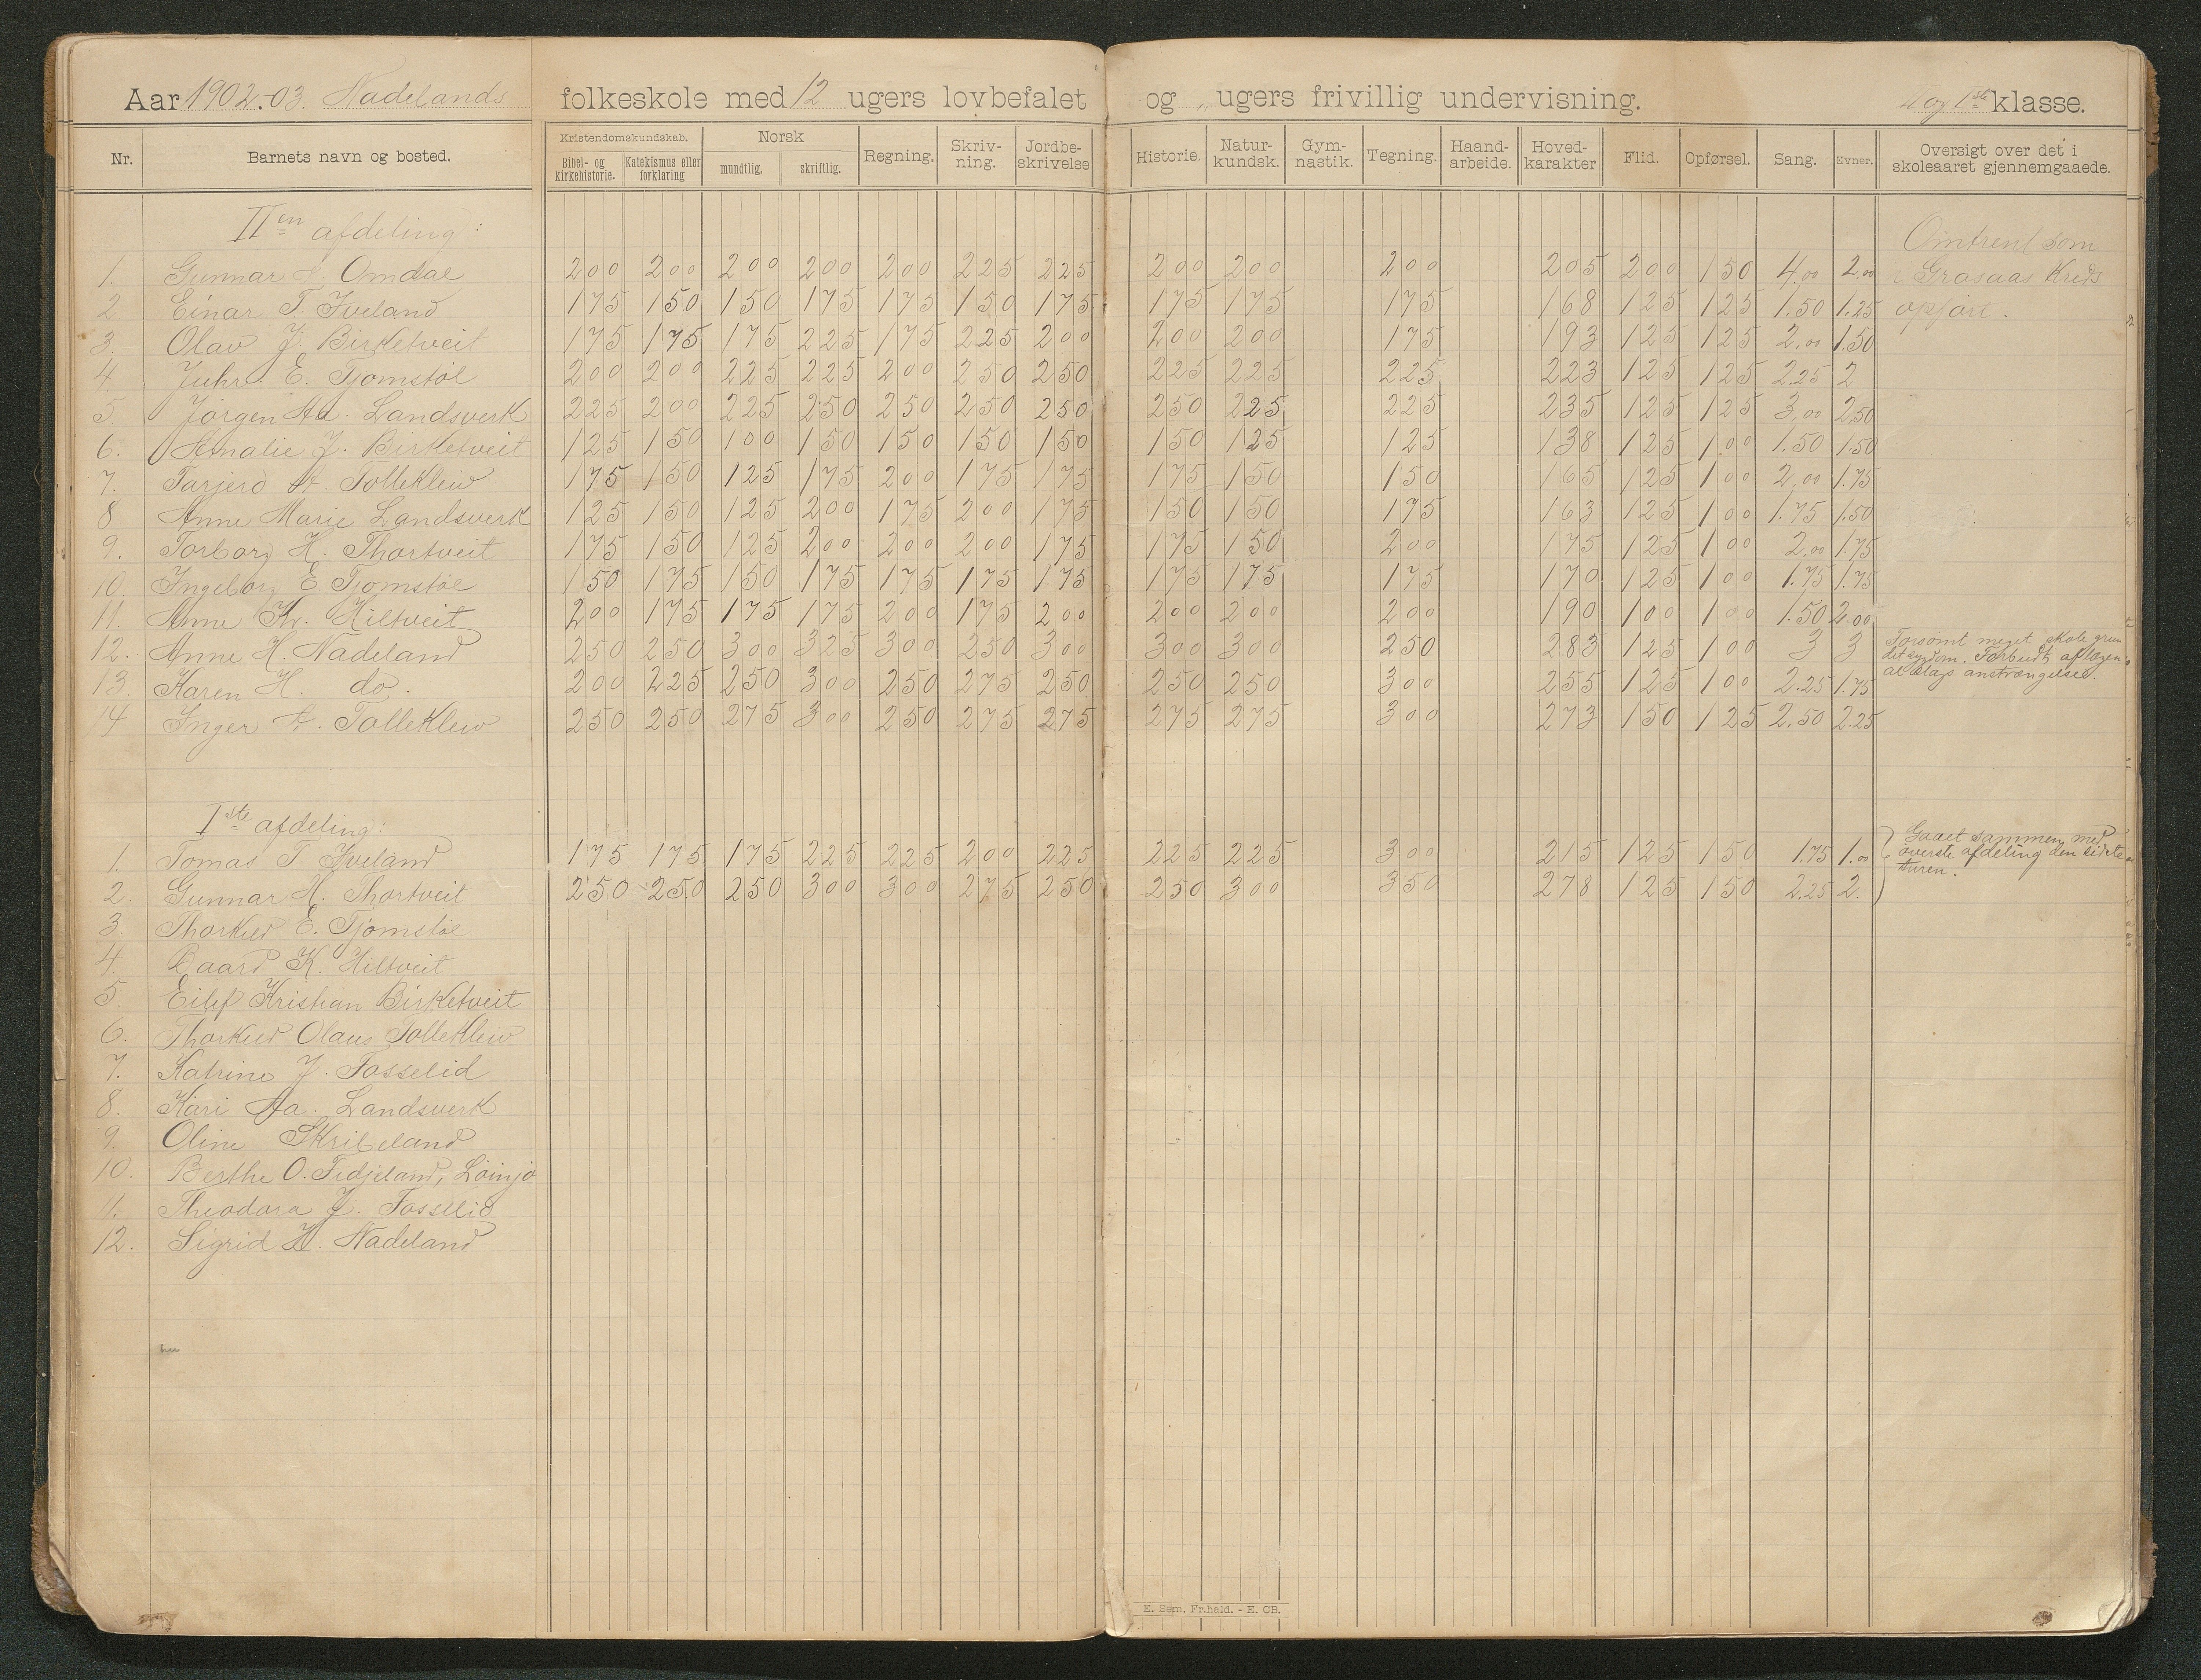 Aar 1902-03. Nadelands folkeskole med 12 ugers lovbefalet og „ ugers frivillig undervisning. II og 1ste klasse.
Nr. Barnets navn og bosted. Kristendomskundskab. Bibel- og kirkehistorie. Katekismus eller forklaring Norsk mundtlig. skriftlig. Regning. Skriv-ning. Jordbe-skrivelse Historie. Natur-kundsk. Gym-nastik. Tegning. Haand-arbeide. Hoved-karakter Flid. Opførsel. Sang. Evner. Oversigt over det i skoleaaret gjennemgaaede.
IIen afdeling: Omtrent som
1. Gunnar Omdal 200 200 200 200 200 225 225 200 200 200 205 200 150 4.00 2.00 i Grasaas Kreds
2 Einar T. Iveland 175 150 150 175 175 150 175 175 175 175 168 125 125 1.50 1.25 opført.
3. Olav J. Birketveit 175 175 175 225 175 225 200 200 200 175 193 125 125 2.00 1.50
4. E. Tjomstøl 200 200 225 225 200 250 250 225 225 225 223 125 125 2.25 2
5. Jørgen Aa. Landsverk 225 200 225 250 250 250 250 250 225 225 235 125 125 3.00 250
6. Amalie J. Birketveit 125 150 100 150 150 150 150 150 125 125 138 125 100 1.50 1.50
7. Tarjerd A. Tolleklev 175 150 125 175 200 175 175 175 150 150 165 125 100 2.00 1.75
8 Anne Marie Landsverk 125 150 125 200 175 200 175 150 150 175 163 125 100 1.75 1.50
9. Torborg H. Thortveit 175 150 125 200 200 200 175 175 150 200 175 125 100 2.00 1.75
10. Ingeborg E Tjomstøl 150 175 150 175 175 175 175 175 175 175 170 125 100 1.75 1.75
11. Anne Kr. Hiltveit 200 175 175 175 200 175 200 200 200 200 190 100 100 1.50 2.00
12. Anne H. Nadeland 250 250 300 325 300 250 300 300 300 250 283 125 100 3 3 Forsømt meget skole grun
det sygdom. Forbudt af lægen
13. Karen H. do. 200 225 250 300 250 275 250 250 250 300 255 125 100 2.25 1.75 al slags anstrængelse.
14 Inger A. Tolleklev 250 250 275 300 250 275 275 275 275 300 273 150 125 2.50 2.25
Iste afdeling:
1. Tomas T Iveland 175 175 175 225 225 200 225 225 225 300 215 125 150 1.75 1.00 Gaaet sammen med
øverste afdeling den sidste
2. Gunnar H. Thortveit 250 250 250 300 300 275 250 250 300 350 278 125 150 2.25 2. turen.
3. Thorkild E. Tjømstøl
4. K. Hiltveit
5. Eilef Kristian Birketveit
6. Thorkild Olaus Tolleklev
7. Katrine J. Fosselid
8. Kari Aa. Landsverk
9. Oline Skribeland
10. Berthe O. Fidjeland, Løinjo
11. Theodora J. Fosselid
12. Sigrid H. Nadeland
E. Sem, Fr.hald. - E. CB.